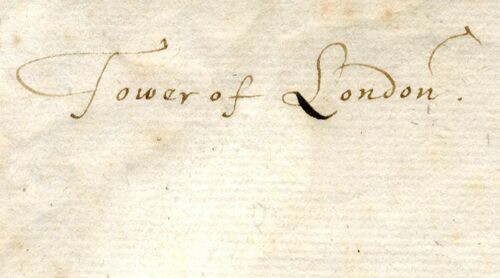 Tower of London.